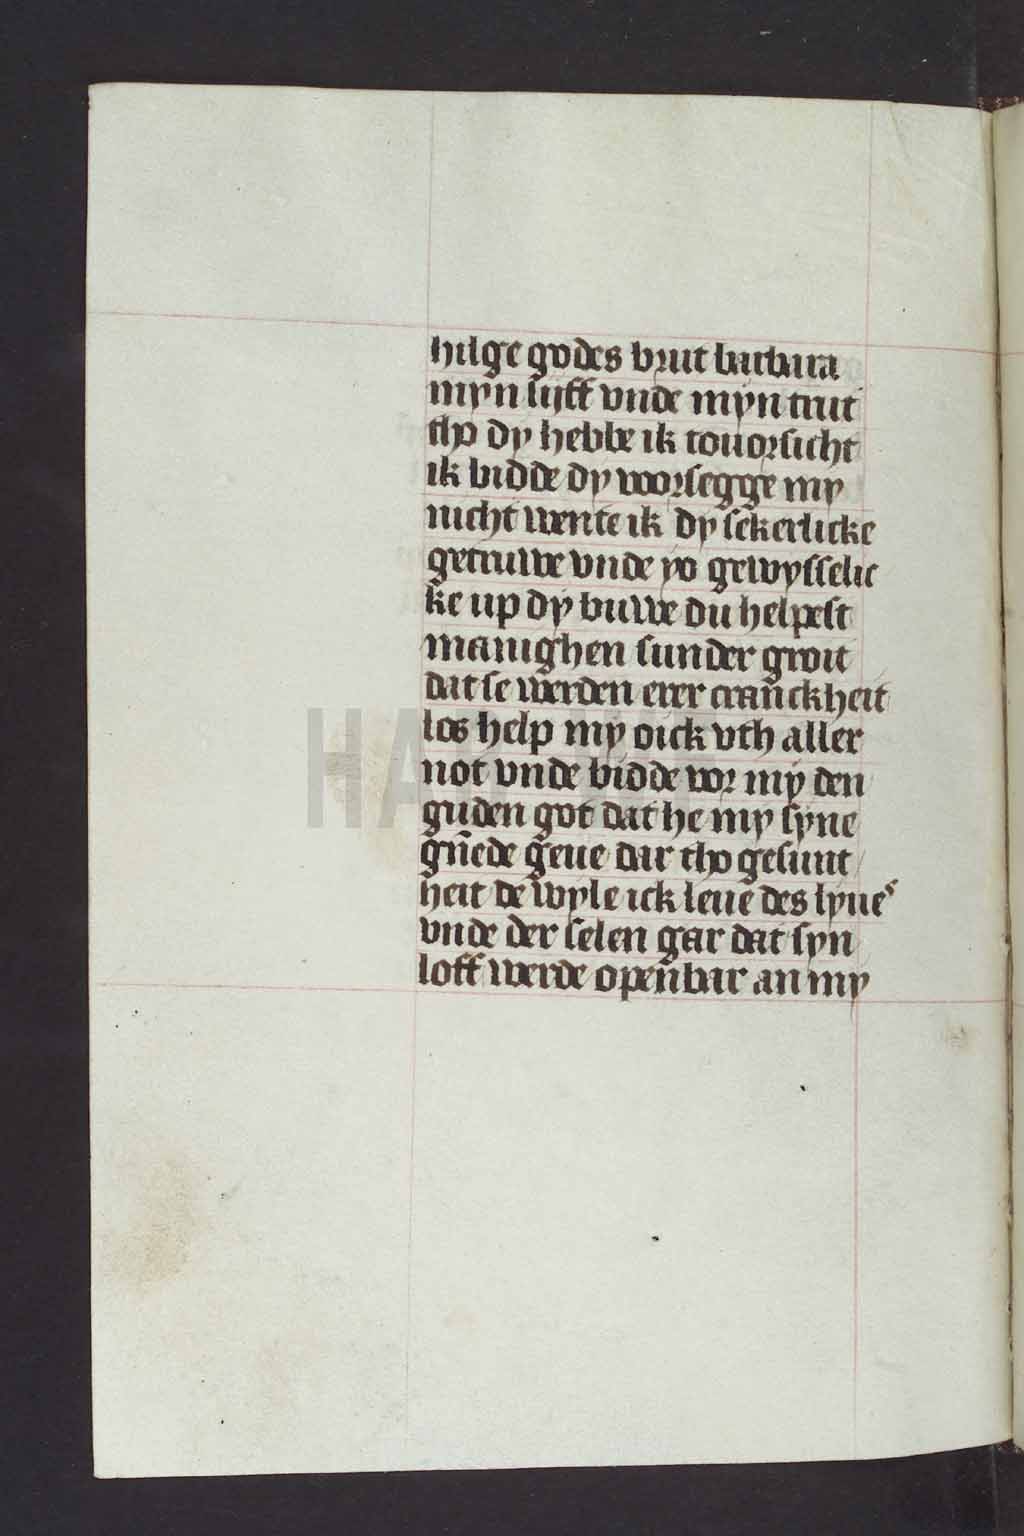 hilge godes brut barbara
myn lyff vnde myn trut
tho dy hebbe ik touorsicht
ik bidde dy voorsegge my
nicht wente ik dy sekerlicke
getruwe vnde yo gewysselic
ke up dy buwe du helpest
manighen sunder groit
dat se werden erer cranckheit
los help my oick vth aller
not vnde bidde vor my den
guden got dat he my syne
gnede geue dar tho gesunt
heit de wyle ick leue des lyues
vnde der selen gar dat syn
loff werde openbar an my